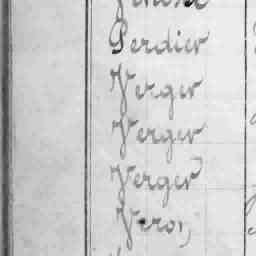 Perdier
Verger
Verger
Verger
Veron